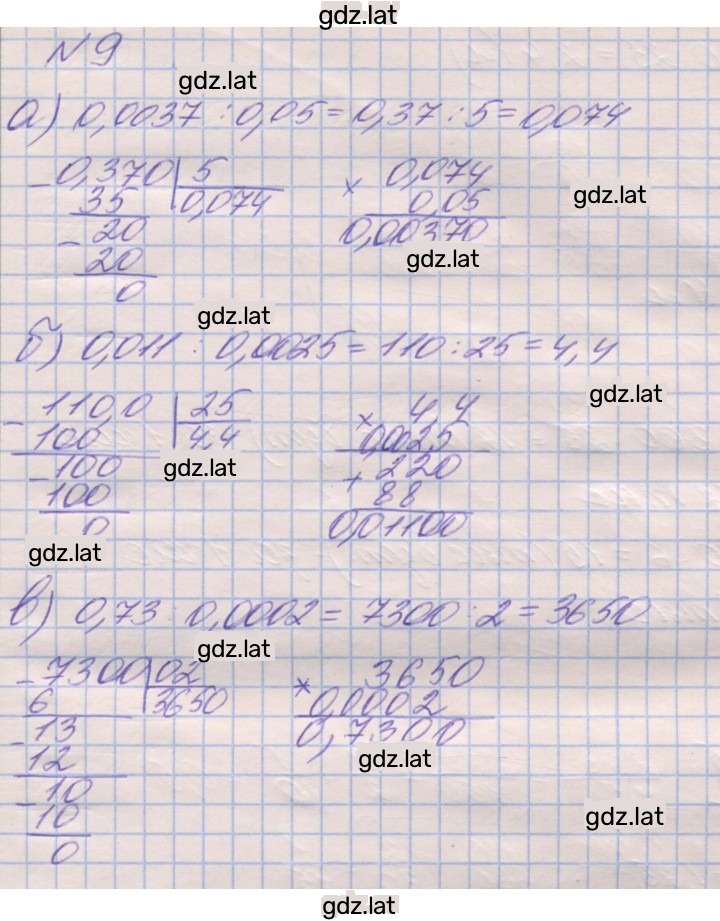 gdz.lat
№9
gdz.lat
а) 0,0037 : 0,05 = 0,37 : 5 = 0,074
- 0,370 | 5 × 0,074
35 0,074 0,05 gdz.lat
- 20 0,00370
20 gdz.lat
0
gdz.lat
б) 0,011 : 0,0025 = 110 : 25 = 4,4
gdz.lat
- 110,0 | 25 × 4,4
100 4,4 0,0025
- 100 gdz.lat + 220
100 88
0 0,01100
gdz.lat
в) 0,73 : 0,0002 = 7300 : 2 = 3650
gdz.lat
- 7300 | 02 × 3650
6 3650 0,0002
- 13 0,7300
12 gdz.lat
- 10
10 gdz.lat
0
gdz.lat